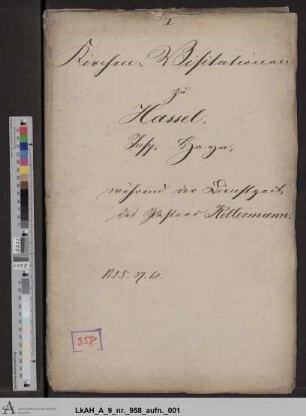 I.
Kirchen-Visitationen
zu
Hassel,
Insp. Hoya,
während der Dienstzeit
des Pastors Kellermann.
1855. 57. 60.
958
LkAH_A_9_nr._958_aufn._001